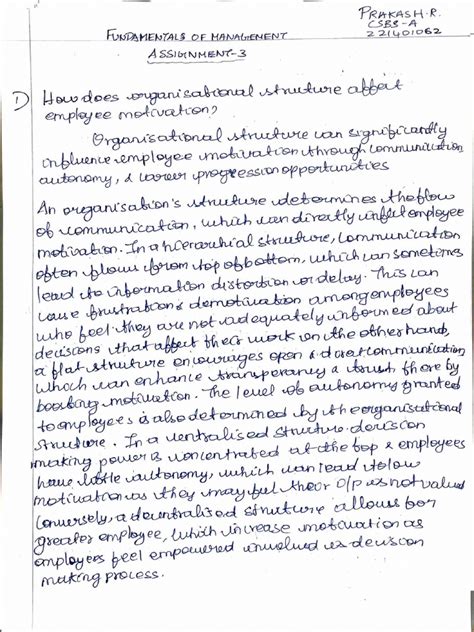 PRAKASH.R.
CSBS-A
221401062
FUNDAMENTALS OF MANAGEMENT
ASSIGNMENT-3
1) How does organisational structure affect
employee motivation?
Organisational structure can significantly
influence employee motivation through communication
autonomy, & career progression opportunities
An organisation's structure determines the flow
of communication, which can directly employee
motivation. In a hierarchial structure, communication
often flows from top of bottom, which can sometimes
lead to information distortion or delay. This can
cause frustration & demotivation among employees
who feel they are not adequately informed about
decisions that affect their work on the other hand,
a flat structure encourages open & direct communication,
which can enhance transperancy & trust there by
boosting motivation. The level of autonomy granted
to employees is also determined by the organisational
structure. In a centralised structure decision
making power is concentrated at the top & employees
have little autonomy, which can lead to low
motivation as they may feel their o/p is not valued
Conversely, a decentralised structure allows for
greater employee, which increase motivation as
employees feel empowered involved is decision
making process.